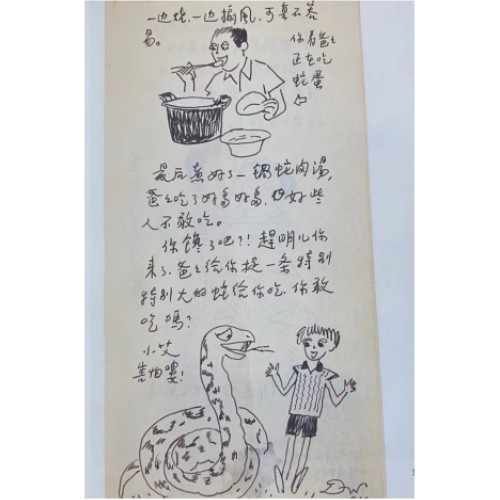 一边烧,一边搧風,可真不容
易。
你看爸爸
正在吃
蛇蛋
最后煮好了一锅蛇肉湯,
爸爸吃了好多好多,好些
人不敢吃。
你馋了吧?!趕明儿你
来了,爸爸给你捉一条特别
特别大的蛇给你吃,你敢
吃嗎?
小艾
害怕嘍!
DW